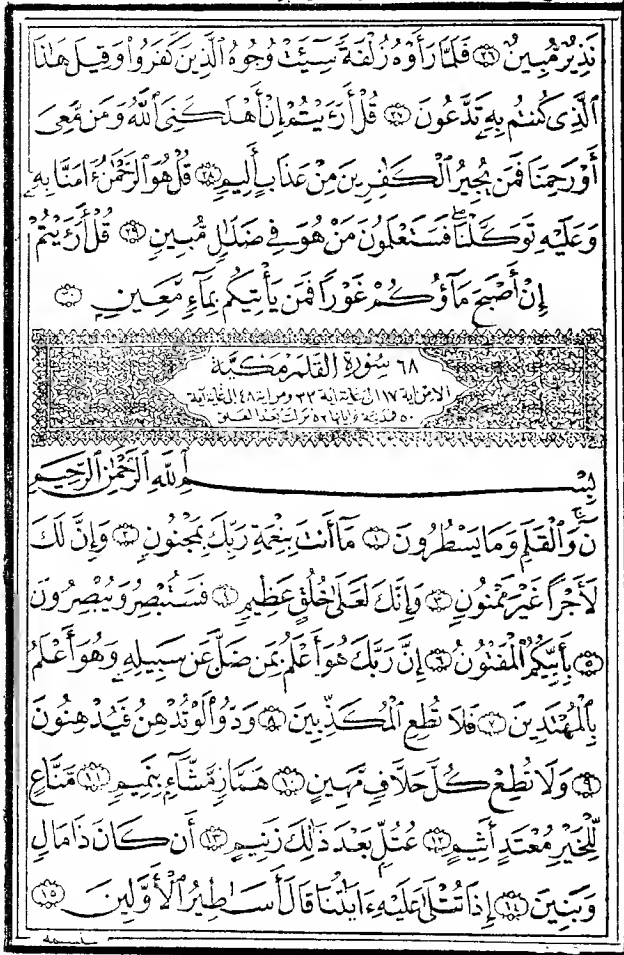 نَذِيرٌ مُّبِينٌ ٢٦ فَلَمَّا رَأَوْهُ زُلْفَةً سِيٓـَٔتْ وُجُوهُ ٱلَّذِينَ كَفَرُوا۟ وَقِيلَ هَٰذَا
ٱلَّذِى كُنتُم بِهِۦ تَدَّعُونَ ٢٧ قُلْ أَرَءَيْتُمْ إِنْ أَهْلَكَنِىَ ٱللَّهُ وَمَن مَّعِىَ
أَوْ رَحِمَنَا فَمَن يُجِيرُ ٱلْكَٰفِرِينَ مِنْ عَذَابٍ أَلِيمٍ ٢٨ قُلْ هُوَ ٱلرَّحْمَٰنُ ءَامَنَّا بِهِۦ
وَعَلَيْهِ تَوَكَّلْنَا ۖ فَسَتَعْلَمُونَ مَنْ هُوَ فِى ضَلَٰلٍ مُّبِينٍ ٢٩ قُلْ أَرَءَيْتُمْ
إِنْ أَصْبَحَ مَآؤُكُمْ غَوْرًا فَمَن يَأْتِيكُم بِمَآءٍ مَّعِينٍۭ ٣٠
٦٨ سُورَةُ القَلَمِ مَكِيَّة
الا من اية ١٧ الى غاية اية ٣٣ ومن اية ٤٨ الى غاية آية
٥٠ فمدنية وآياتها ٥٢ نزلت بعد العلق
بِسْمِ ٱللَّهِ ٱلرَّحْمَٰنِ ٱلرَّحِيمِ
نٓ ۚ وَٱلْقَلَمِ وَمَا يَسْطُرُونَ ١ مَآ أَنتَ بِنِعْمَةِ رَبِّكَ بِمَجْنُونٍ ٢ وَإِنَّ لَكَ
لَأَجْرًا غَيْرَ مَمْنُونٍ ٣ وَإِنَّكَ لَعَلَىٰ خُلُقٍ عَظِيمٍ ٤ فَسَتُبْصِرُ وَيُبْصِرُونَ
٥ بِأَييِّكُمُ ٱلْمَفْتُونُ ٦ إِنَّ رَبَّكَ هُوَ أَعْلَمُ بِمَن ضَلَّ عَن سَبِيلِهِۦ وَهُوَ أَعْلَمُ
بِٱلْمُهْتَدِينَ ٧ فَلَا تُطِعِ ٱلْمُكَذِّبِينَ ٨ وَدُّوا۟ لَوْ تُدْهِنُ فَيُدْهِنُونَ
٩ وَلَا تُطِعْ كُلَّ حَلَّافٍ مَّهِينٍ ١٠ هَمَّازٍ مَّشَّآءٍۭ بِنَمِيمٍ ١١ مَّنَّاعٍ
لِّلْخَيْرِ مُعْتَدٍ أَثِيمٍ ١٢ عُتُلٍّۭ بَعْدَ ذَٰلِكَ زَنِيمٍ ١٣ أَن كَانَ ذَا مَالٍ
وَبَنِينَ ١٤ إِذَا تُتْلَىٰ عَلَيْهِ ءَايَٰتُنَا قَالَ أَسَٰطِيرُ ٱلْأَوَّلِينَ ١٥